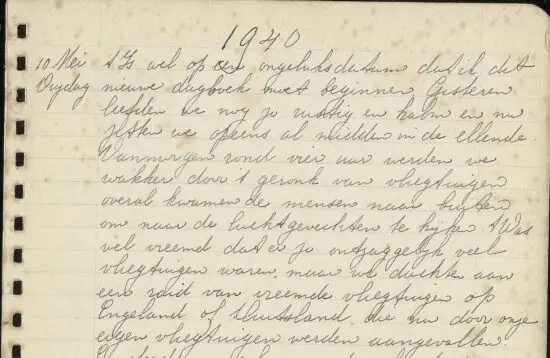 1940
10 Mei 't Is wel op een ongeluksdatum dat ik dit
Vrijdag nieuwe dagboek moet beginnen. Gisteren
leefden we nog zo rustig en kalm en nu
zitten we opeens al midden in de ellende.
Vanmorgen rond vier uur werden we
wakker door 't geronk van vliegtuigen
overal kwamen de mensen naar buiten
om naar de luchtgevechten te kijken. 't Was
wel vreemd dat er zo ontzaggelijk veel
vliegtuigen waren, maar we dachten aan
een raid van vreemde vliegtuigen op
Engeland of Duitsland, die nu door onze
eigen vliegtuigen werden aangevallen.